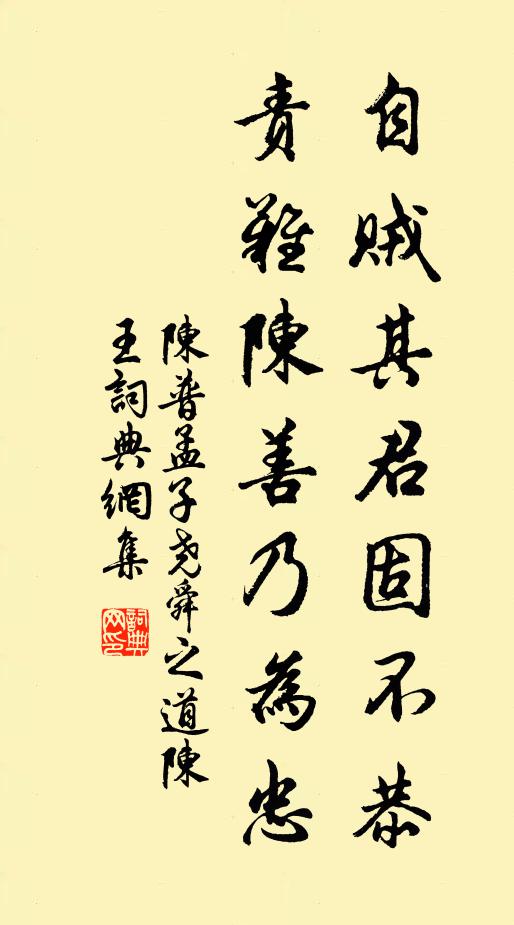 自賊其君固不恭
責難陳善乃為忠
陳普孟子尧舜之道陳
王詞典網集
詞典
网印